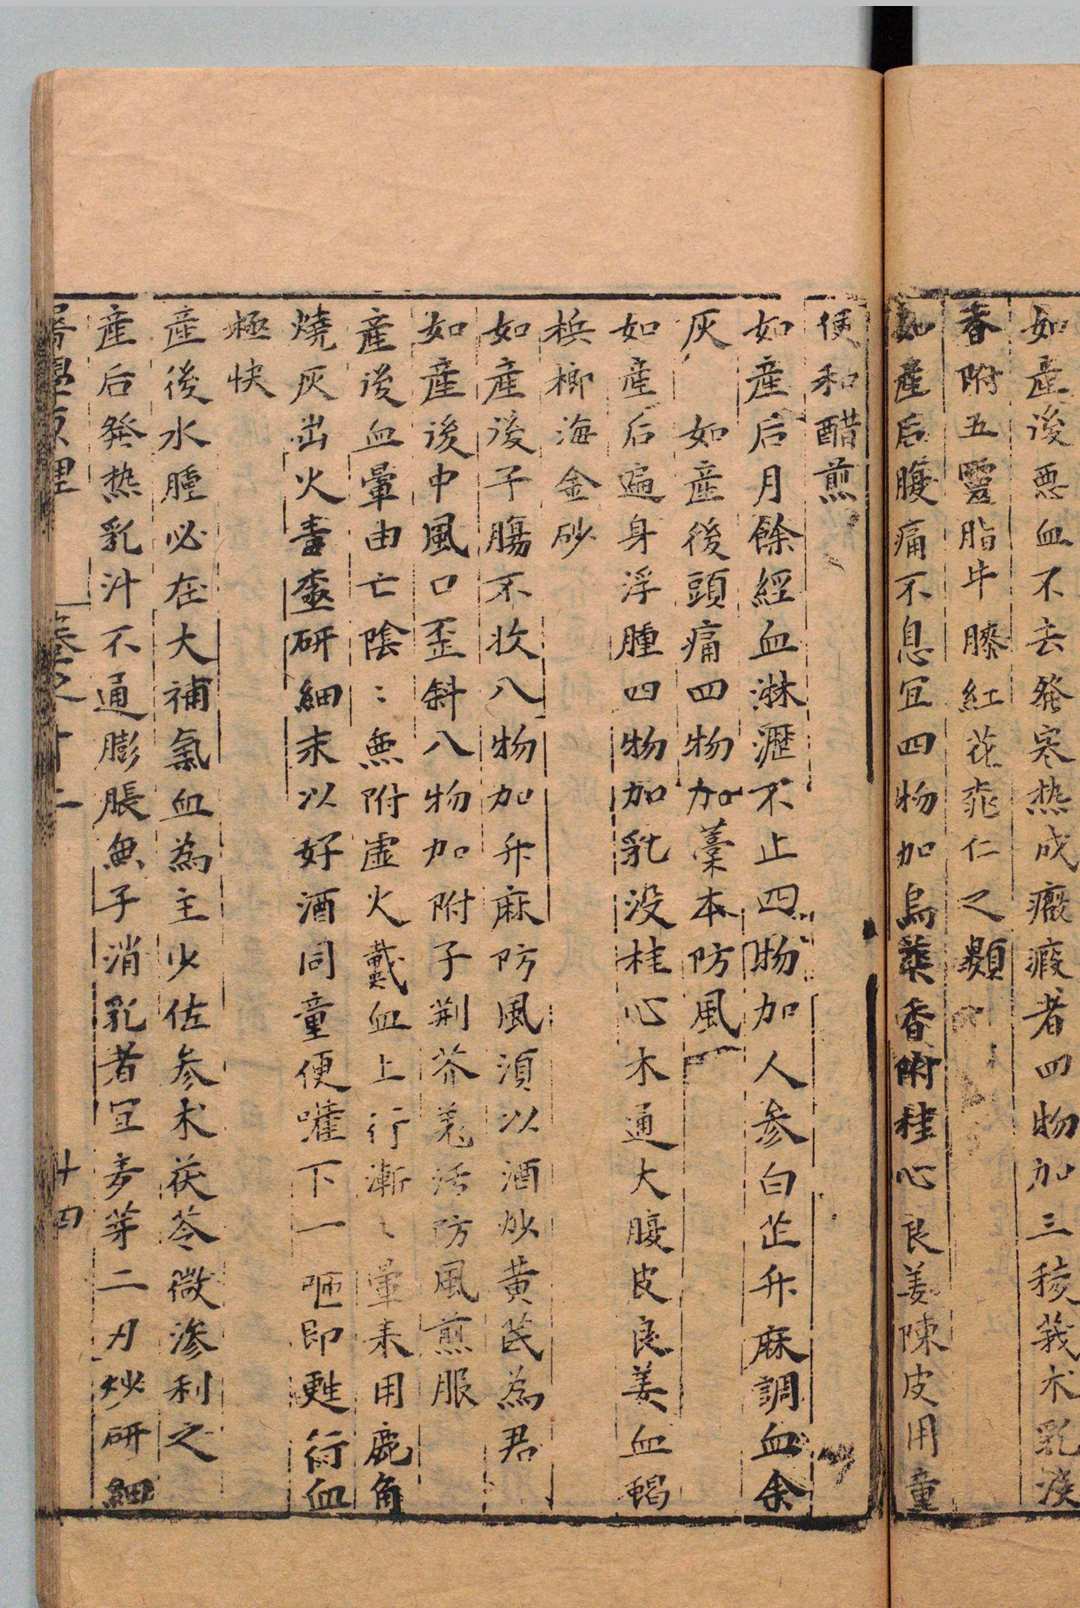 如產後悪血不去發寒热成癥瘕者四物加三稜莪朮乳没
香附五靈脂牛膝紅花桃仁之類
如產后腹痛不息宜四物加烏藥香附桂心良姜陳皮用童
便和醋煎
如產后月餘經血淋瀝不止四物加人参白芷升麻調血余
灰　如產後頭痛四物加藁本防風
如產后遍身浮腫四物加乳没桂心木通大腹皮良姜血蝎
梹榔海金砂
如產後子腸不收八物加升麻防風湏以酒炒黄芪為君
如產後中風口歪斜八物加附子荆芥羌活防風煎服
產後血暈由亡陰〻無附虚火載血上行漸〻暈来用鹿角
燒灰出火毒研細末以好酒同童便嚾下一咂即甦行血
極快
產後水腫必在大補氣血為主少佐参术茯苓微滲利之
產后發热乳汁不通膨脹無子消乳者宜麥芽二刃炒研細
醫學原理　卷之十二　十四